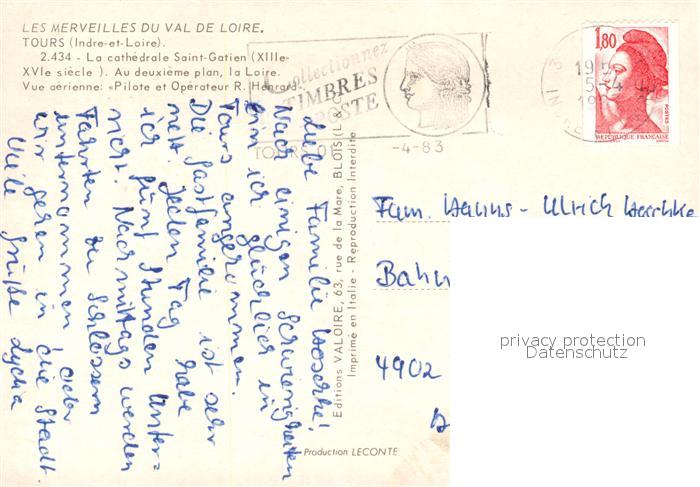 LES MERVEILLES DU VAL DE LOIRE.
TOURS (Indre-et-Loire).
2.434 - La cathédrale Saint-Gatien (XIIIe-
XVIe siècle ). Au deuxième plan, la Loire.
Vue aérienne: «Pilote et Opérateur R. Henrard».
Collectionnez
TIMBRES
POSTE
TOURS
-4-83
1,80
POSTES
REPUBLIQUE FRANÇAISE
19
5-4
19
Liebe Familie
Nach einigen Schwierigkeiten
bin ich glücklich in
Tours angekommen.
Die Gastfamilie ist sehr
nett. Jeden Tag habe
ich fünf Stunden Unter=
richt. Nachmittags werden
Fahrten zu Schlössern
unternommen, oder
wir gehen in die Stadt.
Viele Grüße Lydia
Editions VALOIRE, 63, rue de la Mare, BLOIS (L.
Imprimé en Italie - Reproduction Interdite
Fam. Hanns - Ulrich
Bahn
4902
Production LECONTE
privacy protection
Datenschutz